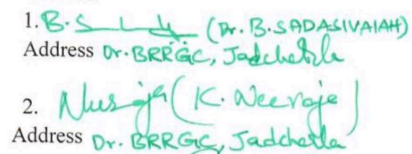 1. B. S (Dr. B. SADASIVAIAH)
Address Dr. BRRGC, Jadcherla
2. (K. Neeraja)
Address Dr. BRRGC, Jadcherla